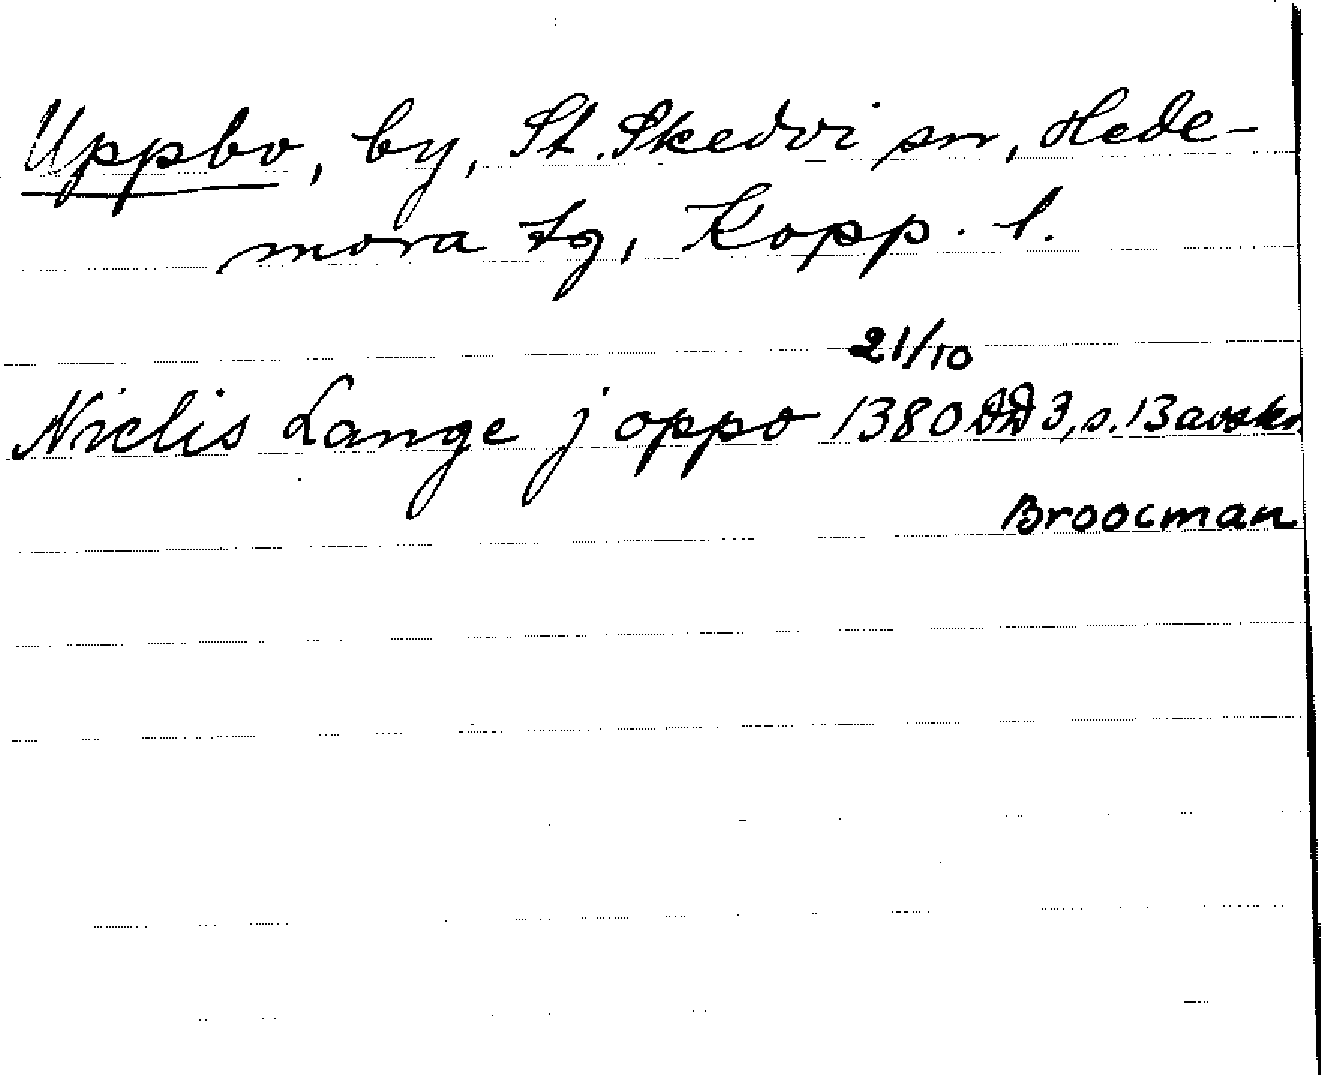 Uppbo, by, St. Skedvi sn, Hede-
mora tg, Kopp. l.
21/10
Niclis Lange j oppo 1380 DD 3, s. 13 avskr.
Broocman